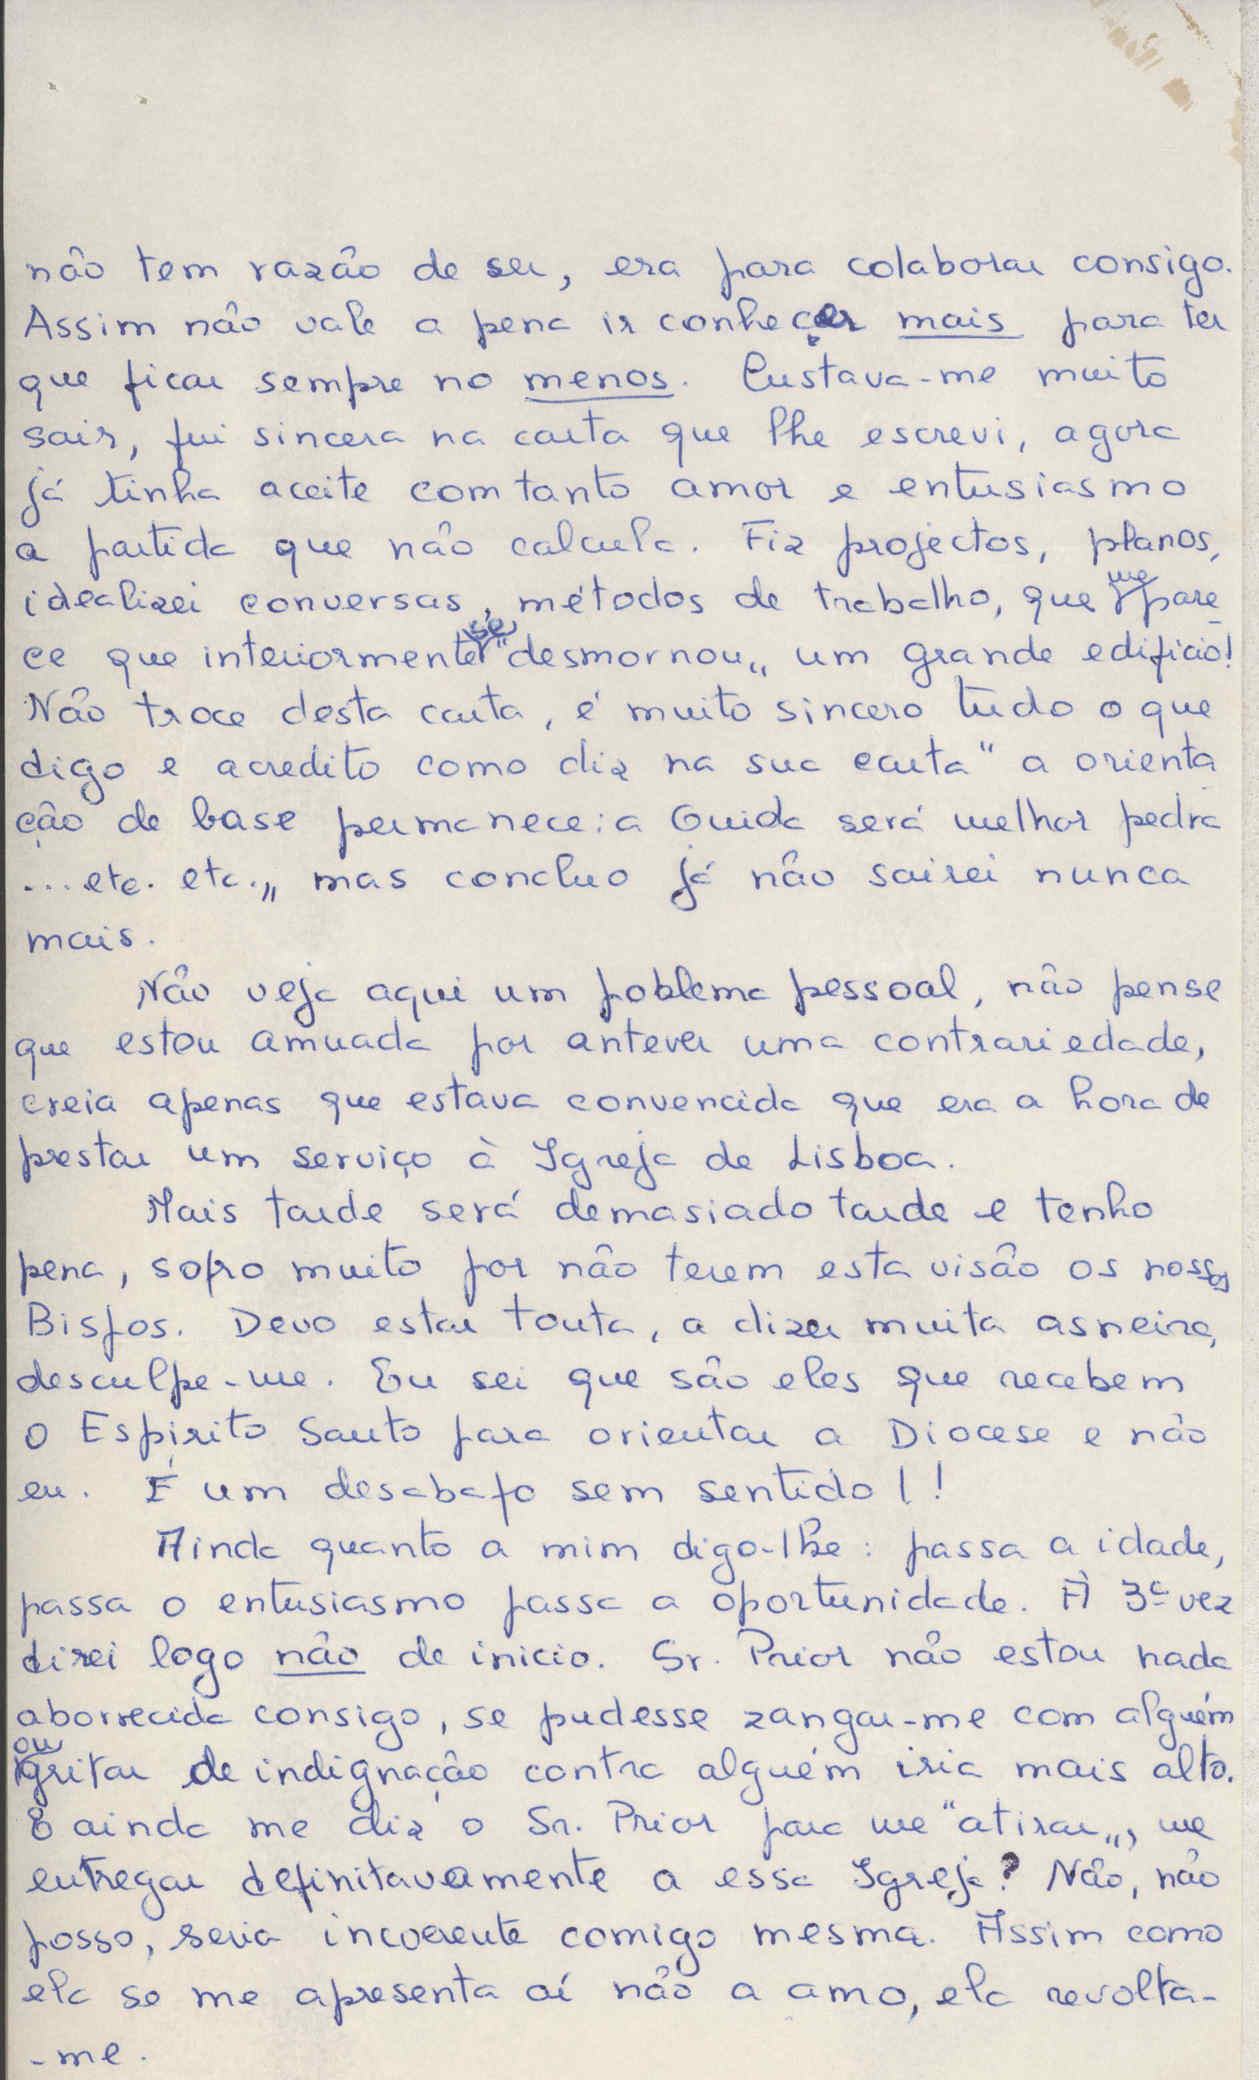 não tem razão de ser, era para colaborar consigo.
Assim não vale a pena ir conhecer mais para ter
que ficar sempre no menos. Custava-me muito
sair, fui sincera na carta que lhe escrevi, agora
já tinha aceite com tanto amor e entusiasmo
a partida que não calcula. Fiz projectos, planos,
idealizei conversas, métodos de trabalho, que me pare
ce que interiormente se "desmornou„ um grande edificio!
Não troce desta carta, é muito sincero tudo o que
digo e acredito como diz na sua carta "a orienta
ção de base permanece: a Guida será melhor pedra
... etc. etc.„ mas concluo já não sairei nunca
mais.
Não veja aqui um poblema pessoal, não pense
que estou amuada por antever uma contrariedade,
creia apenas que estava convencida que era a hora de
prestar um serviço à Igreja de Lisboa.
Mais tarde será demasiado tarde e tenho
pena, sofro muito por não terem esta visão os nossos
Bispos. Devo estar tonta, a dizer muita asneira,
desculpe-me. Eu sei que são eles que recebem
o Espirito Santo para orientar a Diocese e não
eu. É um desabafo sem sentido!!
Ainda quanto a mim digo-lhe: passa a idade,
passa o entusiasmo passa a oportunidade. À 3ª vez
direi logo não de inicio. Sr. Prior não estou nada
aborrecida consigo, se pudesse zangar-me com alguém
ou gritar de indignação contra alguém iria mais alto.
E ainda me diz o Sr. Prior para me "atirar„, me
entregar definitavamente a essa Igreja? Não, não
posso, seria incoerente comigo mesma. Assim como
ela se me apresenta aí não a amo, ela revolta-
-me.